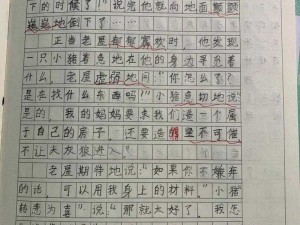 下的时候了！”说完他就向地面颤颤
巍巍地倒下了……
正当老屋郁郁寡欢时，他发现
一只小猪着急地在他的身边寻着
什么，老屋虚弱地问：“你怎么了？
是在找什么东西吗？”小猪急切地说
是的，我的妈妈要求我们造一个属
于自己的房子，还要造的坚不可摧
不让大灰狼进入。”
老屋期待地说：“如果你不嫌弃
的话，可以用我身上的材料。”小猪
转悲为喜，说：“那就太好了，我怎